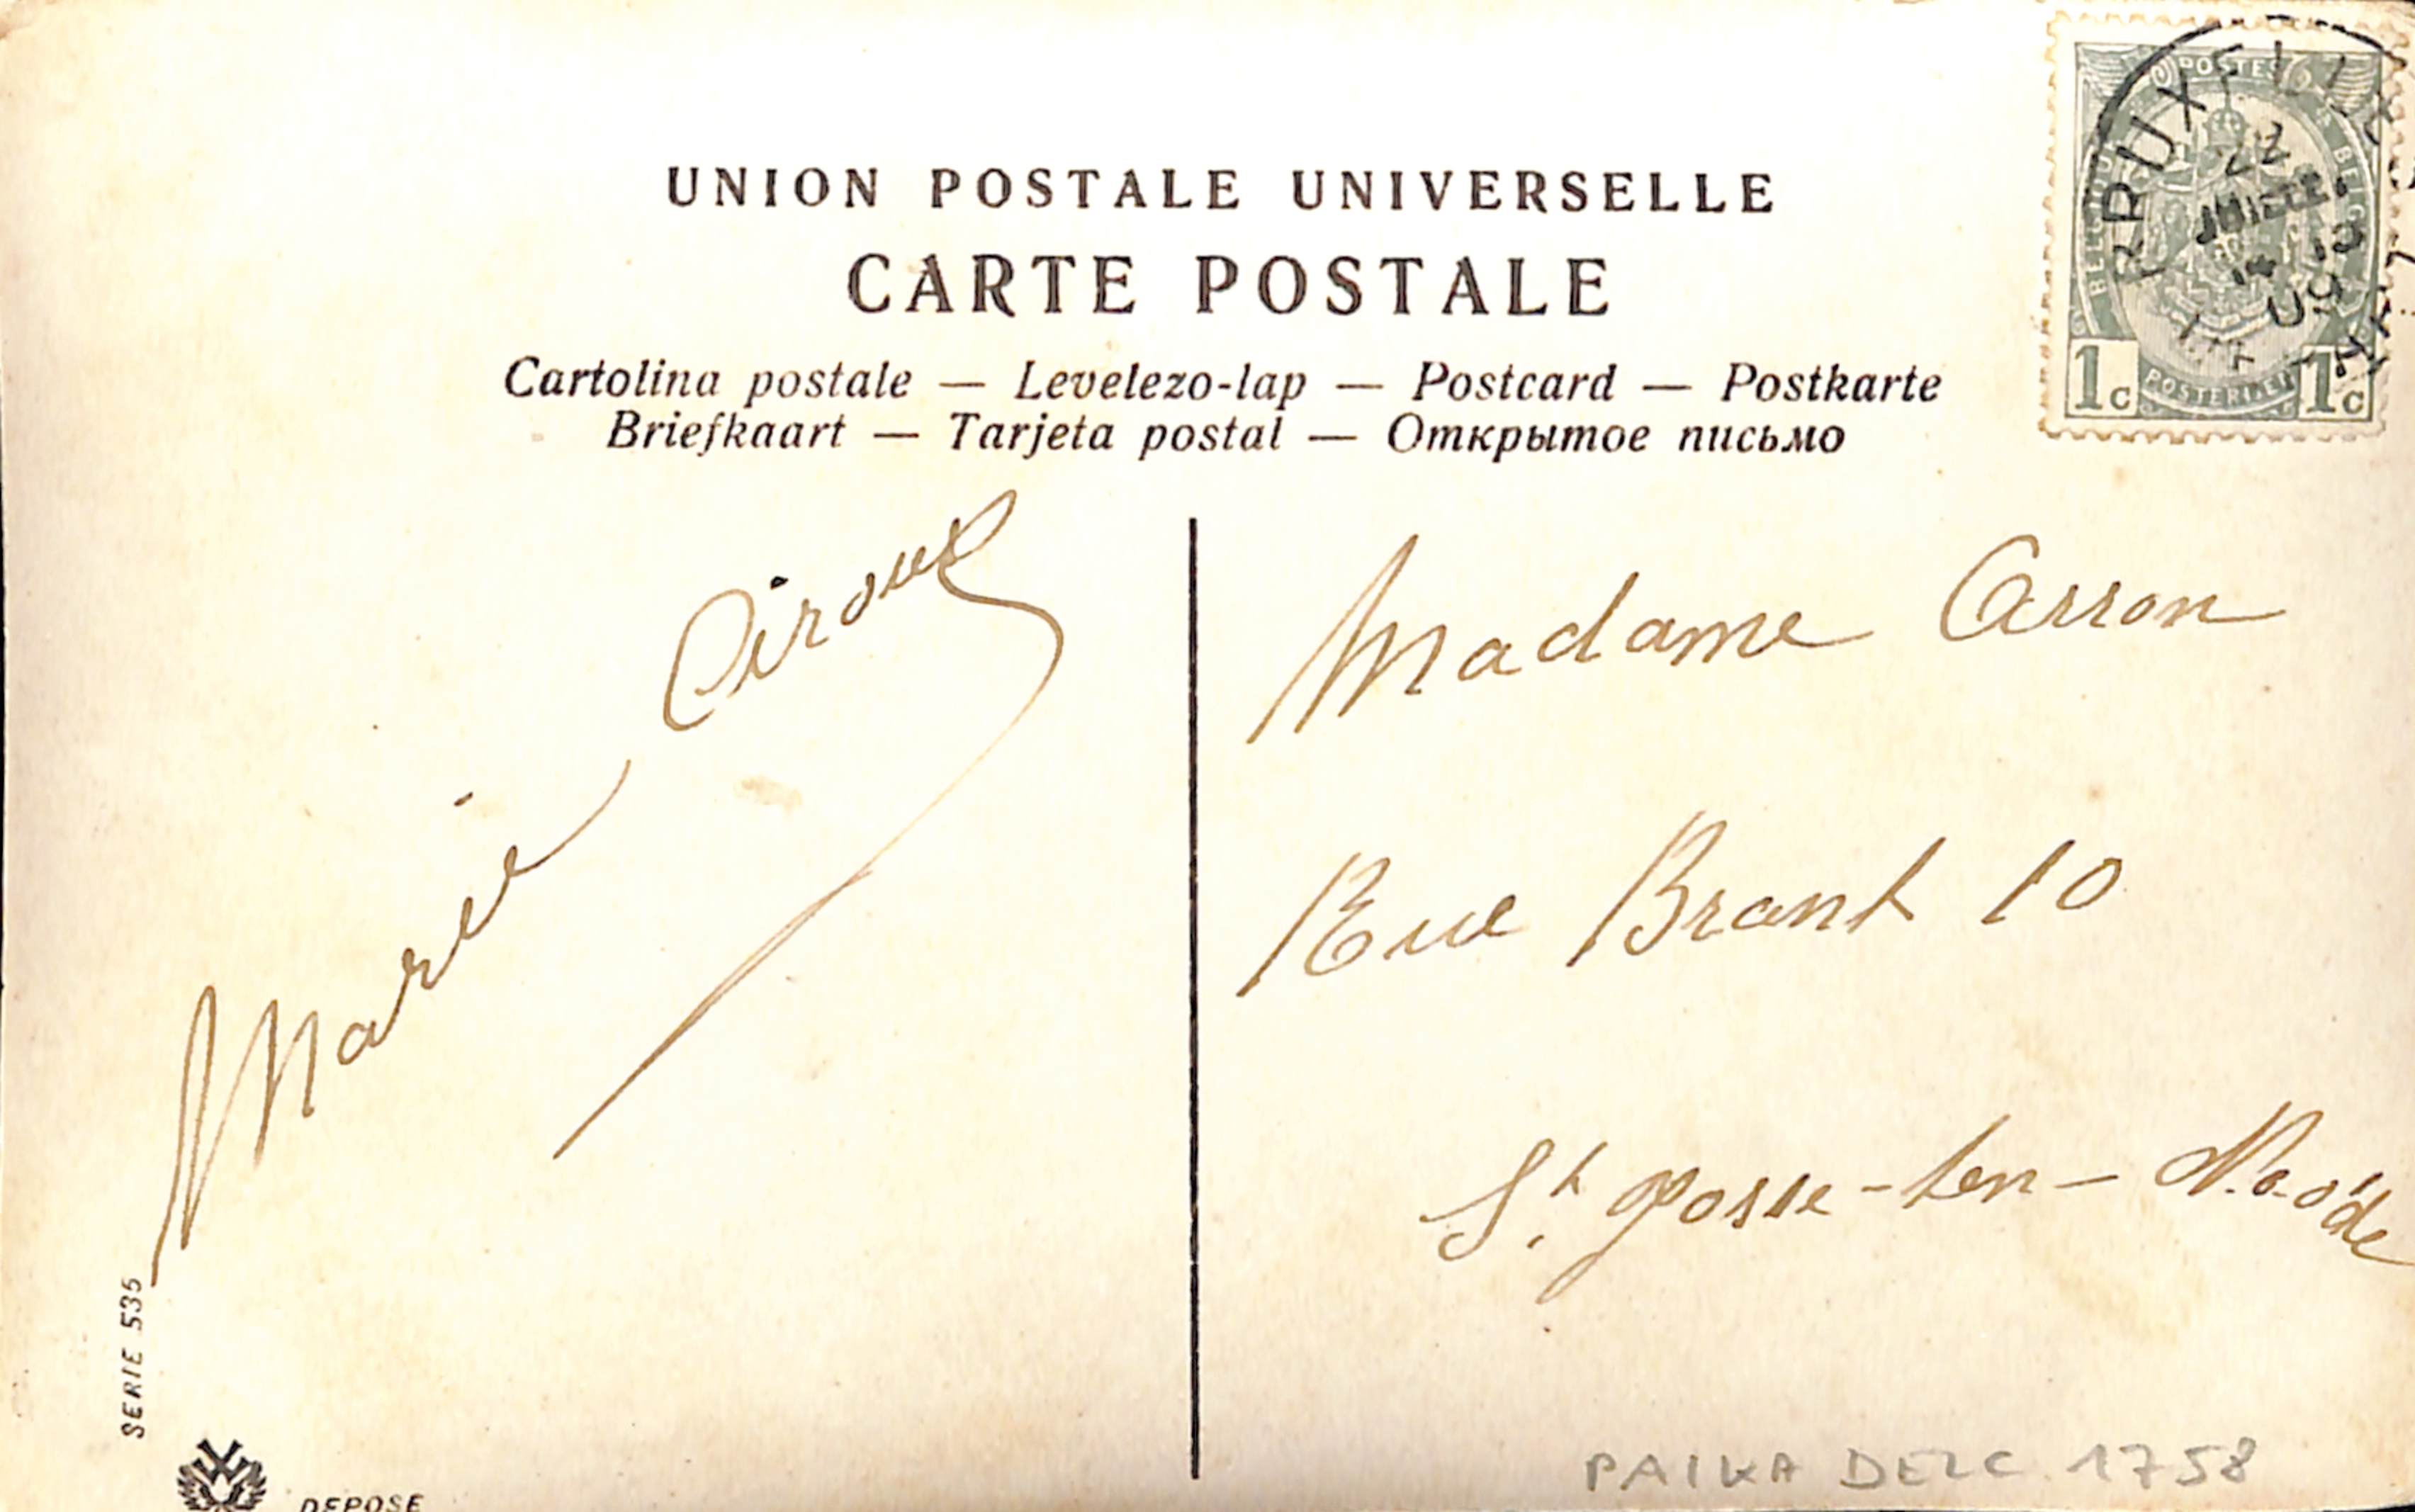 UNION POSTALE UNIVERSELLE
CARTE POSTALE
Cartolina postale — Levelezo-lap — Postcard — Postkarte
Briefkaart — Tarjeta postal — Открытое письмо
POSTES
BRUXELLES
22
JUIL
09
1c 1c
Marie
Madame Carron
Rue Brant 10
St. Josse-ten-Noode
SERIE 535
DEPOSE
1758